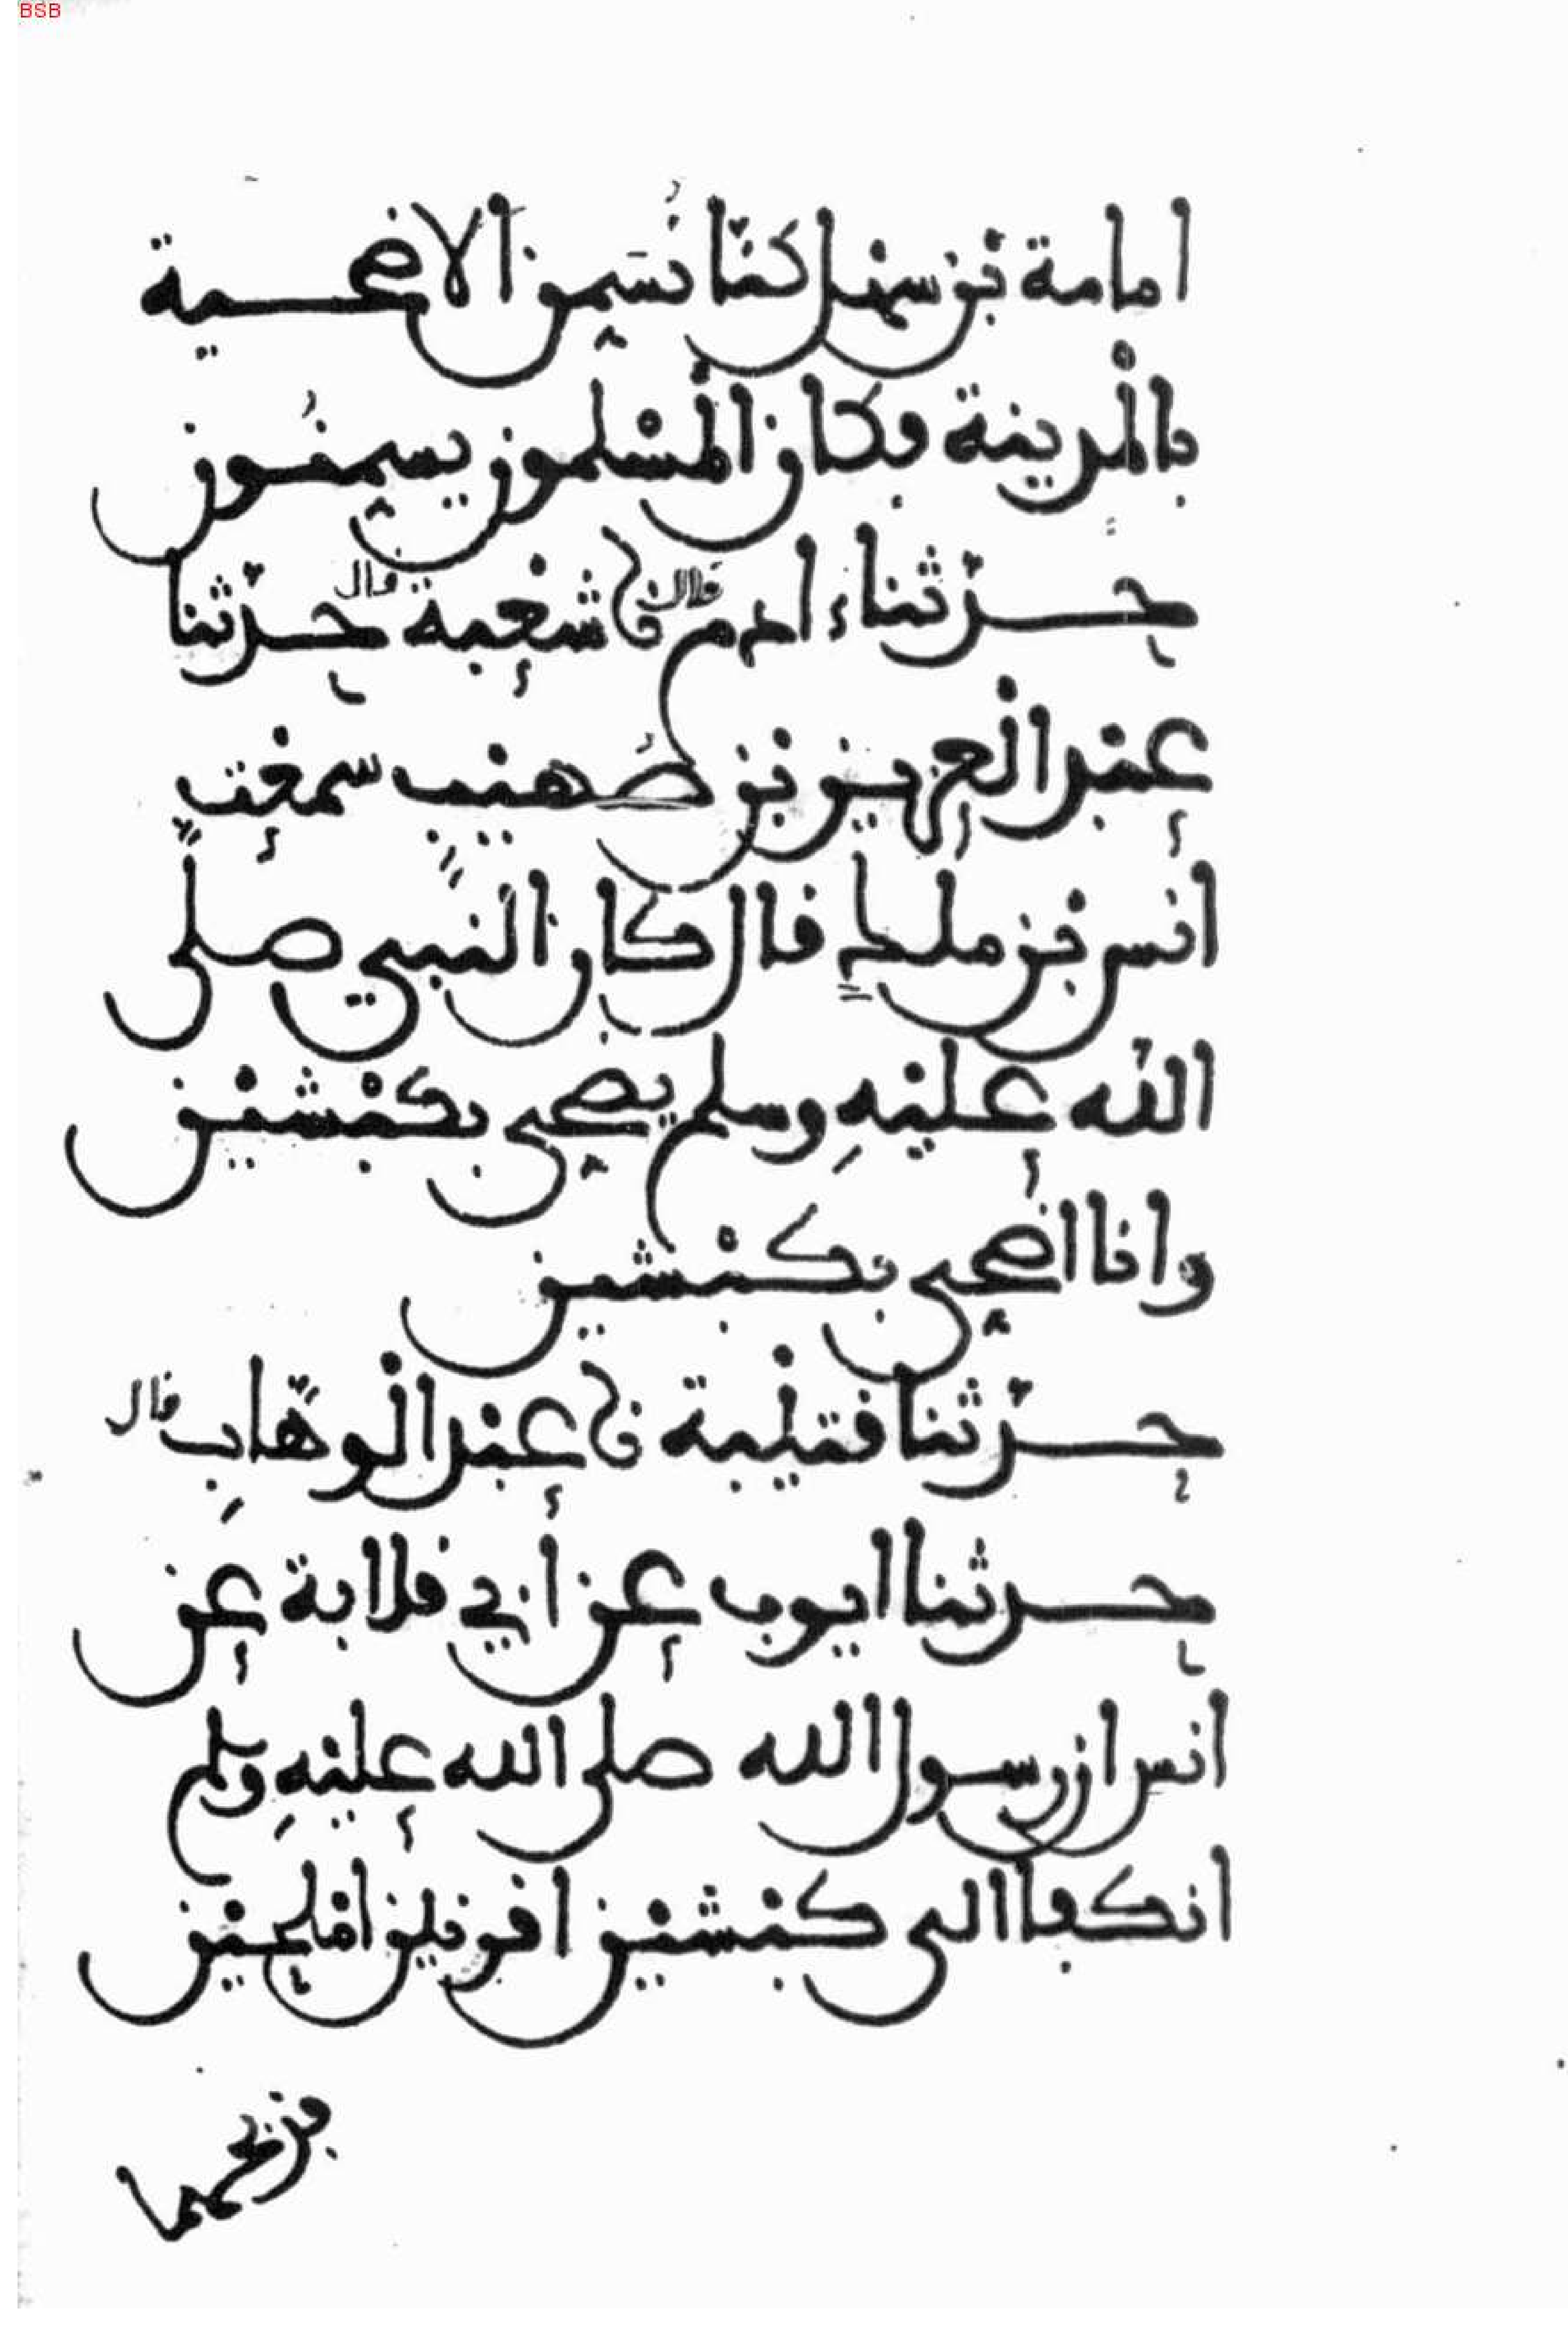 BSB
امامة بْن سهْل كنَّا نُسَمِّن الاضحية
بالْمدينة وكان الْمسْلمون يسمِّنُون
حدّثناء ادم قال نا شعْبة قال حدّثنا
عبْد الْعزيز بْن صُهيْب سمعْت
انس بْن ملك قال كان النّبي صلّى
الله عليْهِ وسلم يضحي بكبْشيْن
وانا اضحي بكبْشين
حدّثنا قتيبة نا عبْد الْوهّابِ قال
حدثنا ايوب عن أبي قلابة عن
انس ان رسول الله صلى الله عليْهِ وسلم
انكفا الى كبْشيْن اقرنين امْلحيْن
فذبحهما